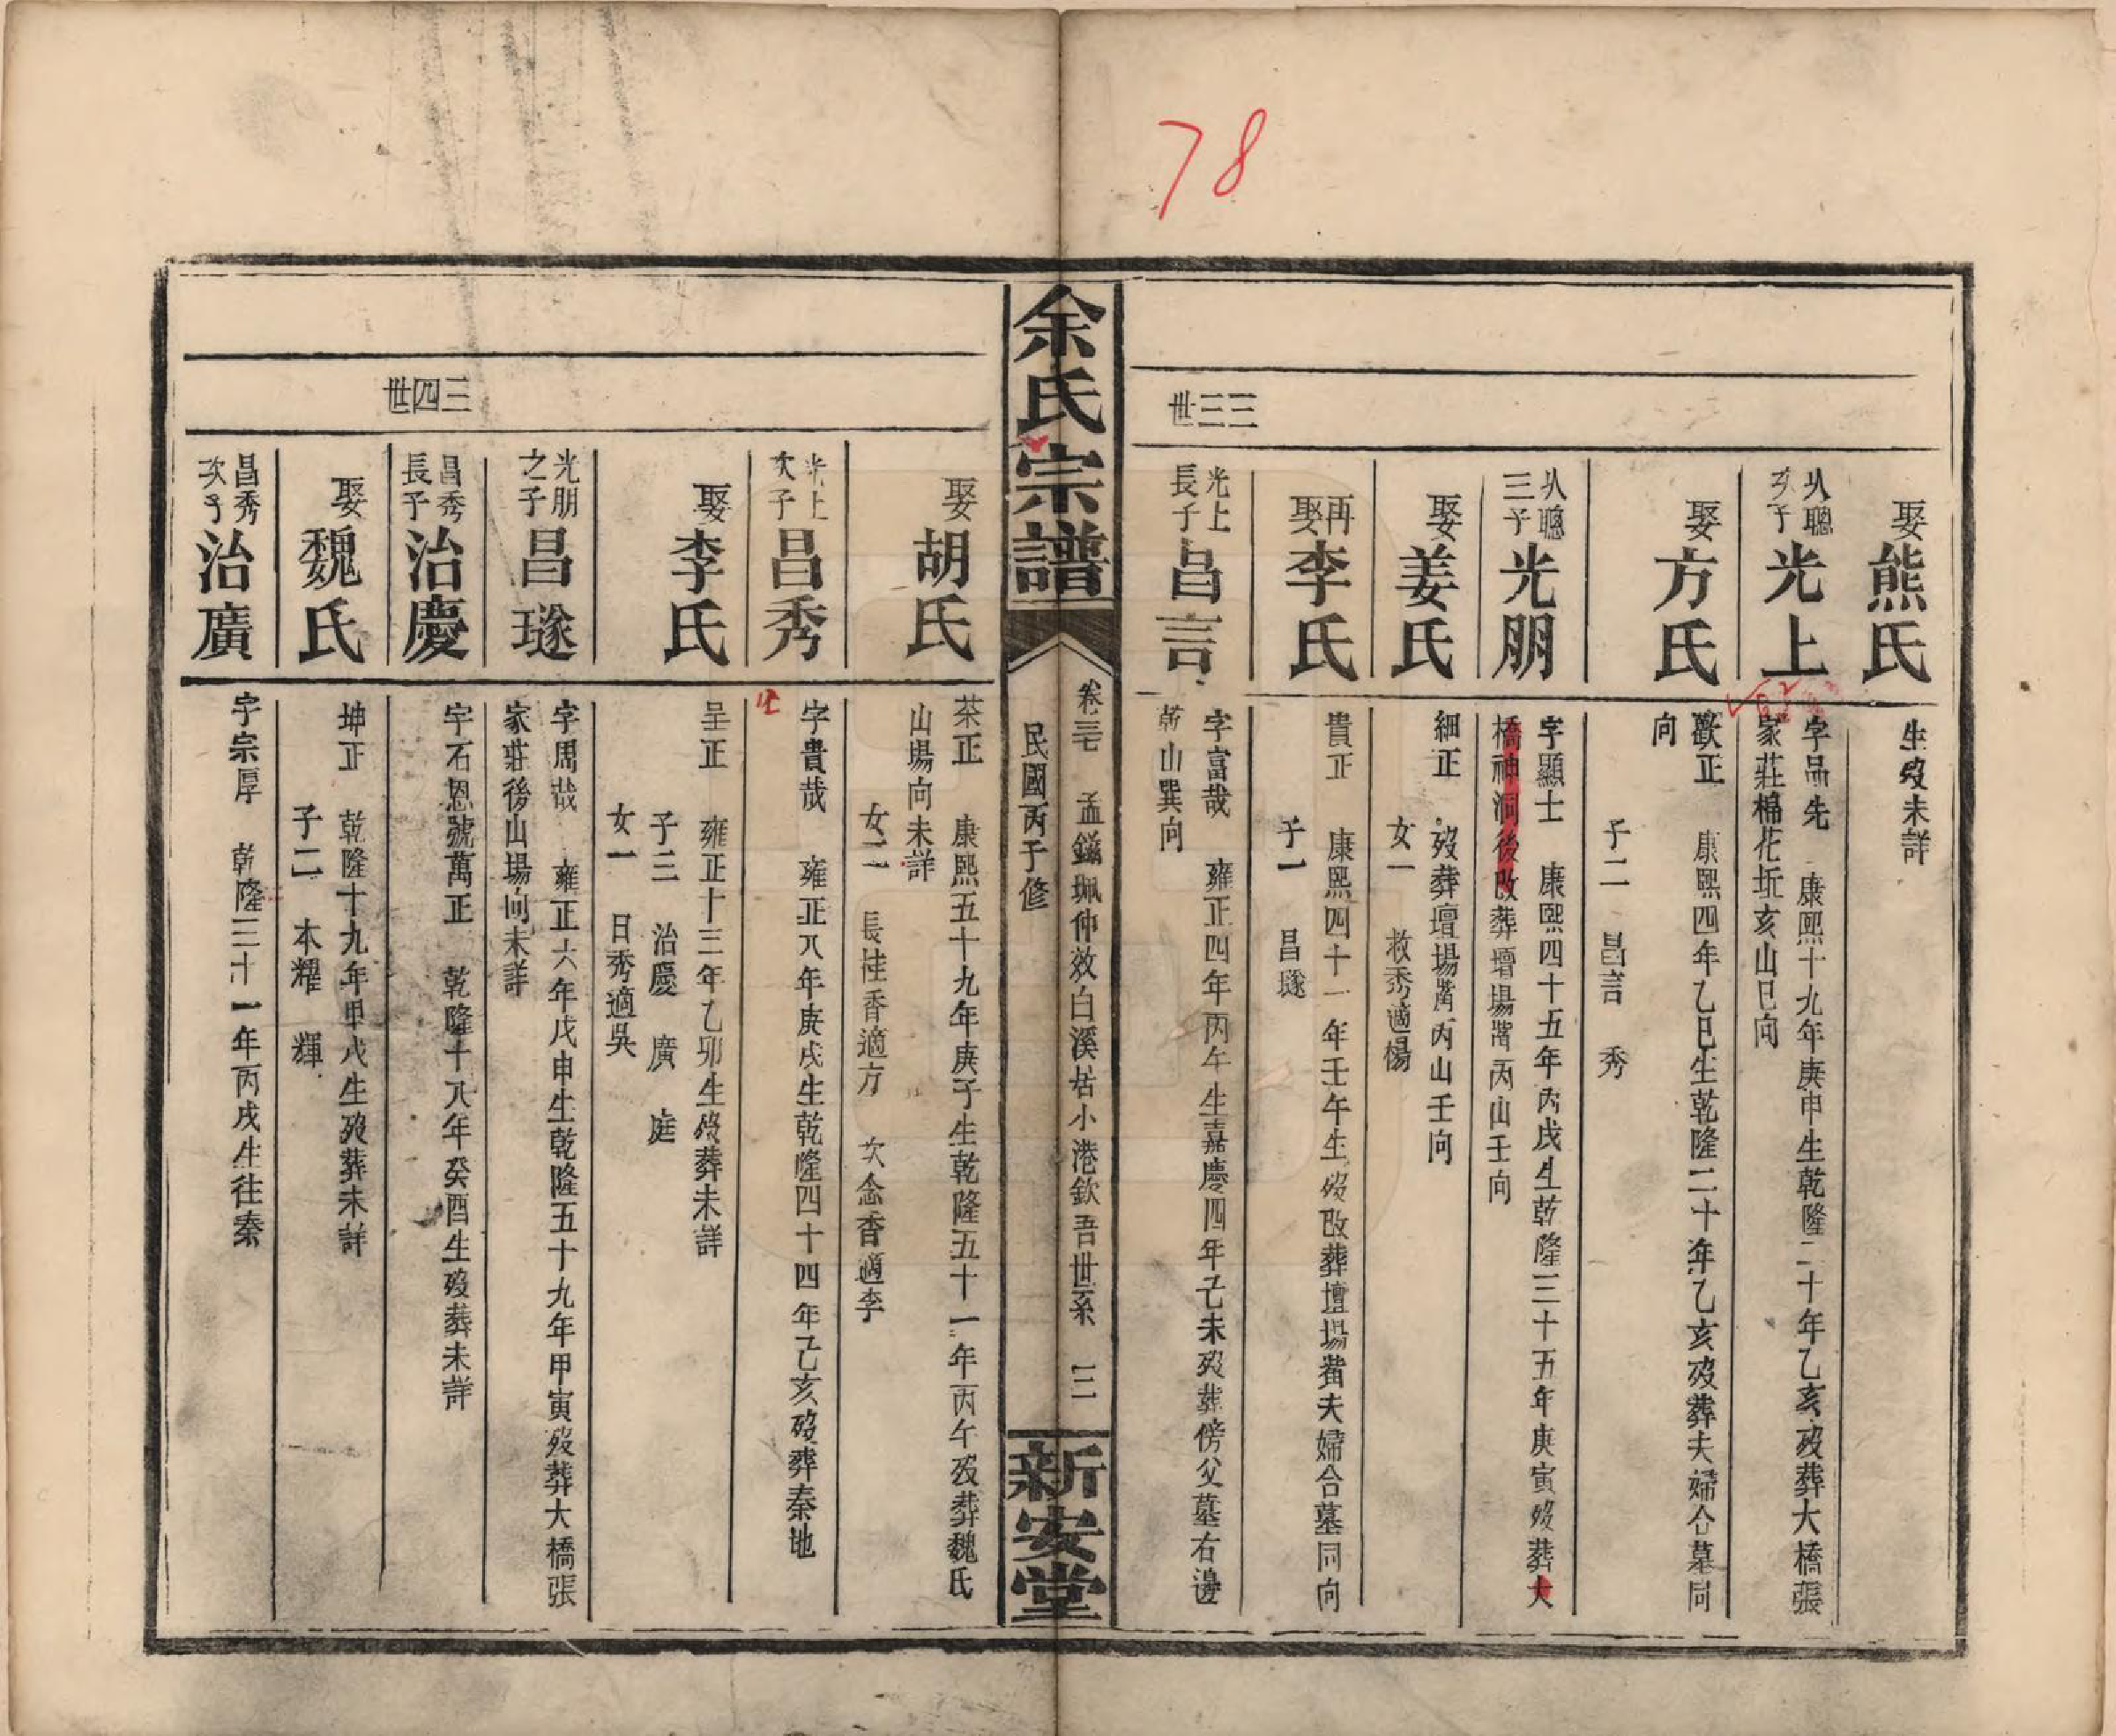 78
三三世
娶熊氏
生歿未詳
从聰次子光上
字品先 康熙十九年庚申生乾隆二十年乙亥歿葬大橋張
家莊棉花坵亥山巳向
娶方氏
歡正 康熙四年乙巳生乾隆二十年乙亥歿葬夫婦合墓同
向
子二 昌言 秀
从聰三子光朋
字顯士 康熙四十五年丙戌生乾隆三十五年庚寅歿葬大
橋神洞後改葬壇場嘴丙山壬向
娶姜氏
細正 歿葬壇場嘴丙山壬向
女一 救秀適楊
再娶李氏
貴正 康熙四十一年壬午生歿改葬壇場嘴夫婦合墓同向
子一 昌璲
光上長子昌言
字富哉 雍正四年丙午生嘉慶四年己未歿葬傍父墓右邊
乾山巽向
余氏宗譜
卷三七 孟鎰珮仲效白溪居小港欽吾世系 三
民國丙子修
新安堂
三四世
娶胡氏
茶正 康熙五十九年庚子生乾隆五十一年丙午歿葬魏氏
山場向未詳
女二 長桂香適方 次念香適李
光上次子昌秀
字貴哉 雍正八年庚戌生乾隆四十四年己亥歿葬秦地
娶李氏
呈正 雍正十三年乙卯生歿葬未詳
子三 治慶 廣 庭
女一 日秀適吳
光朋之子昌璲
字周哉 雍正六年戊申生乾隆五十九年甲寅歿葬大橋張
家莊後山場向未詳
昌秀長子治慶
字石恩號萬正 乾隆十八年癸酉生歿葬未詳
娶魏氏
坤正 乾隆十九年甲戌生歿葬未詳
子二 本耀 輝
昌秀次子治廣
字宗厚 乾隆三十一年丙戌生往秦